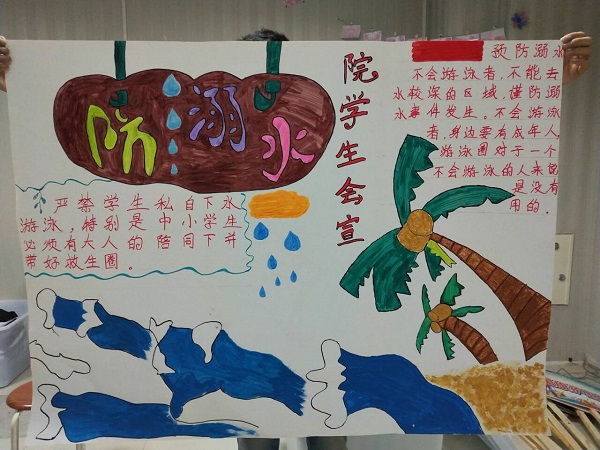 防溺水
严禁学生私自下水
游泳，特别是中小学生
必须有大人的陪同下并
带好救生圈。
院学生会宣
预防溺水
不会游泳者，不能去
水较深的区域，谨防溺
水事件发生。不会游泳
者，身边要有成年人
游泳圈对于一个
不会游泳的人来说
是没有
用的。